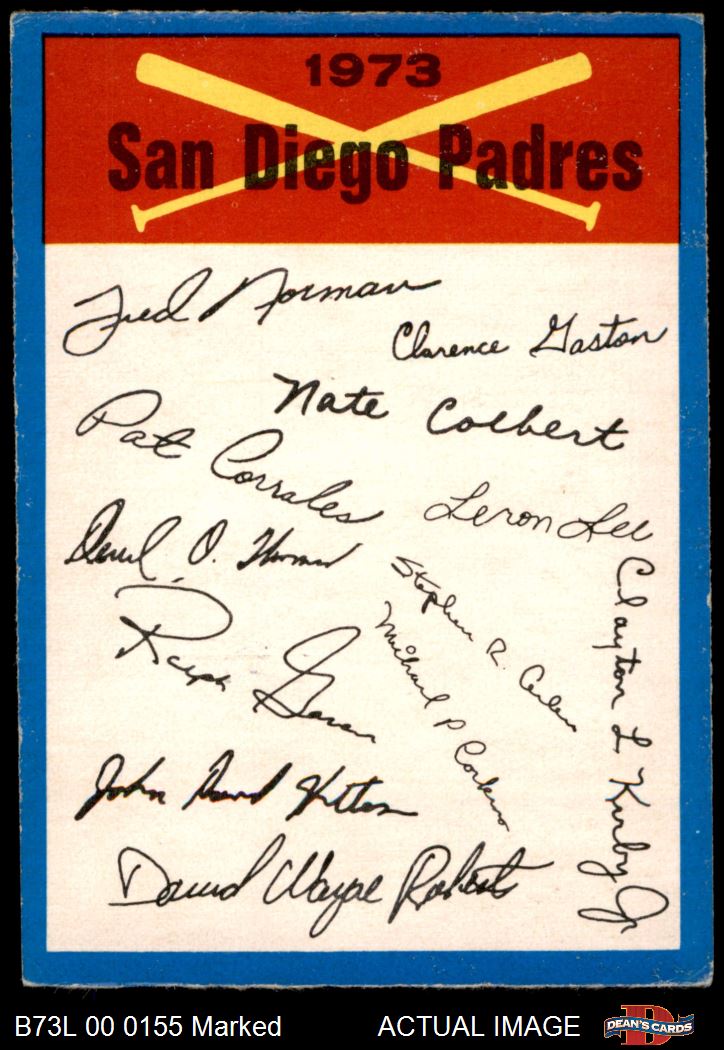 1973
San Diego Padres
Fred Norman
Clarence Gaston
Nate Colbert
Pat Corrales
Leron Lee
Derrel O. Thomas
Stephen R.
Clayton L Kirby Jr
Michael P Corkins
Ralph Garcia
John David Hilton
David Wayne Roberts
B73L 00 0155 Marked
ACTUAL IMAGE
D
DEAN'S CARDS